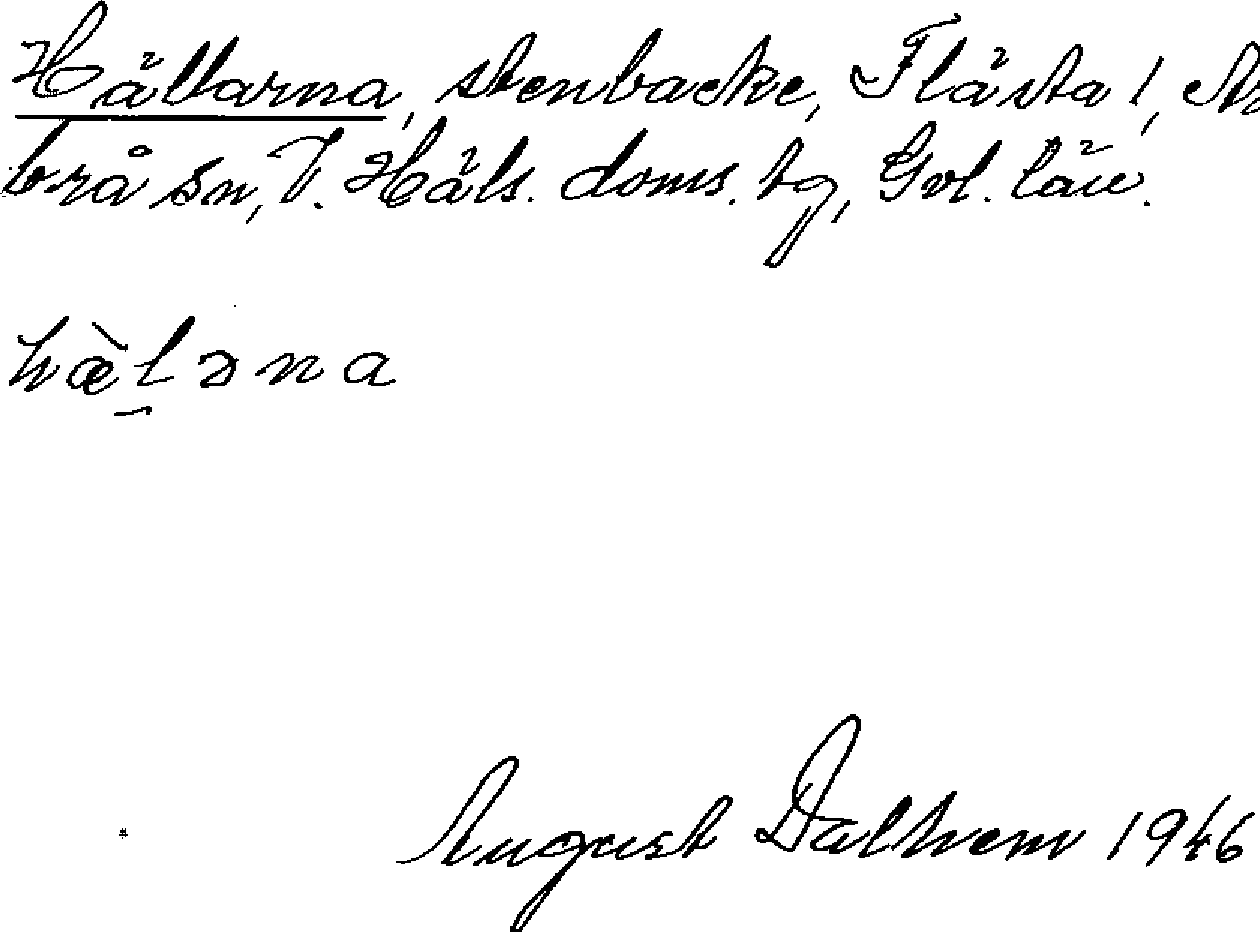 Hällarna, stenbacke, Flästa!, Ar
brå sn, V. Häls. doms. tg, Gvl. län.
hæ̀lǝna
August Dalhem 1946